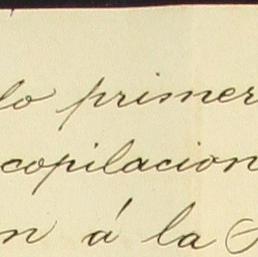 lo primer
copilacion
n á la